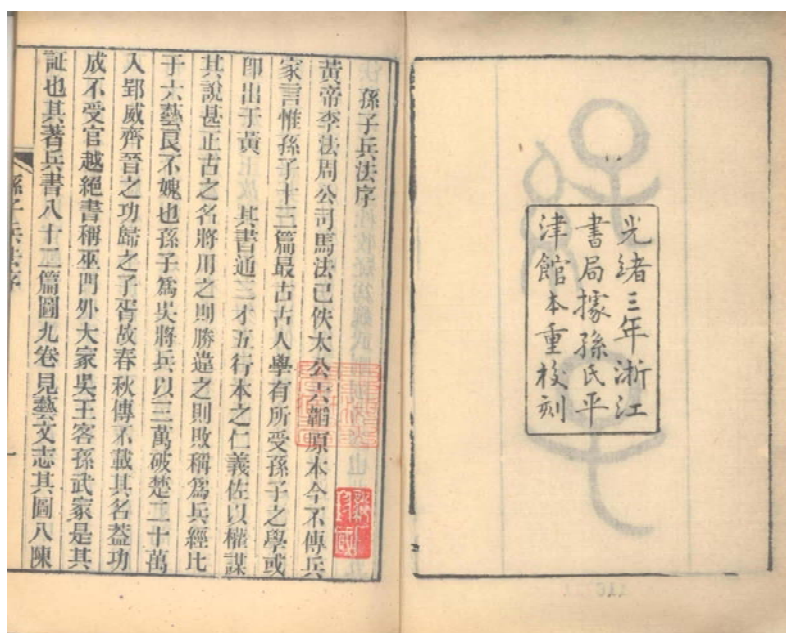 光緒三年浙江
書局據孫氏平
津館本重校刻
孫子兵法序
黃帝李法周公司馬法已佚太公六韜原本今不傳兵
家言惟孫子十三篇最古古人學有所受孫子之學或
即出于黃帝其書通三才五行本之仁義佐以權謀
其說甚正古之名將用之則勝違之則敗稱爲兵經比
于六藝良不媿也孫子爲吳將兵以三萬破楚二十萬
入郢威齊晉之功歸之子胥故春秋傳不載其名葢功
成不受官越絕書稱巫門外大冢吳王客孫武冢是其
証也其著兵書八十二篇圖九卷見藝文志其圖八陳
孫子兵法序